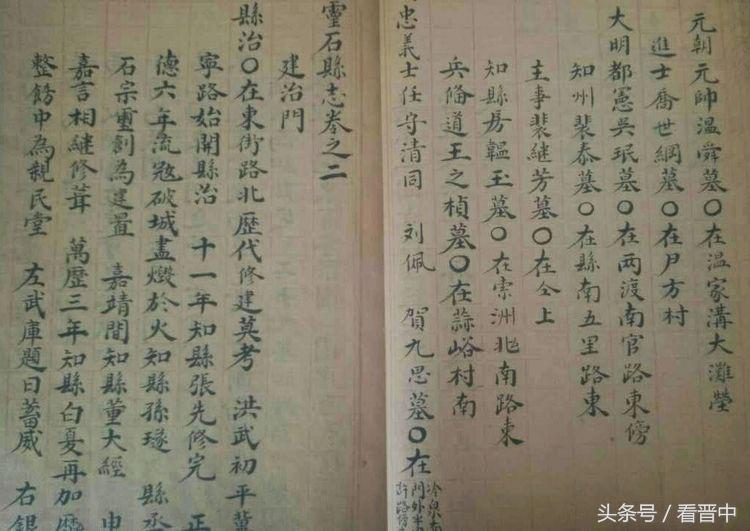 元朝元帥溫舜墓〇在溫家溝大灘塋
進士喬世綱墓〇在尸方村
大明都憲吳珉墓〇在两渡南官路東傍
知州裴泰墓〇在縣南五里路東
主事裴継芳墓〇在仝上
知縣房韞玉墓〇在索洲北南路東
兵偹道王之楨墓〇在蒜峪村南
忠義士任守清同 刘佩 賀九思墓〇在
靈石縣志卷之二
建治門
縣治〇在東街路北歷代修建莫考 洪武初平
寧路始開縣治 十一年知縣張先修完 正
德六年流宼破城盡燬於火知縣孫璲 縣丞
石宗重創為建置 嘉靖間知縣董大經 申
嘉言相継修葺 萬歷三年知縣白夏再加
整飭中為親民堂 左武庫題曰蓄威 右銀
头条号 / 看晋中